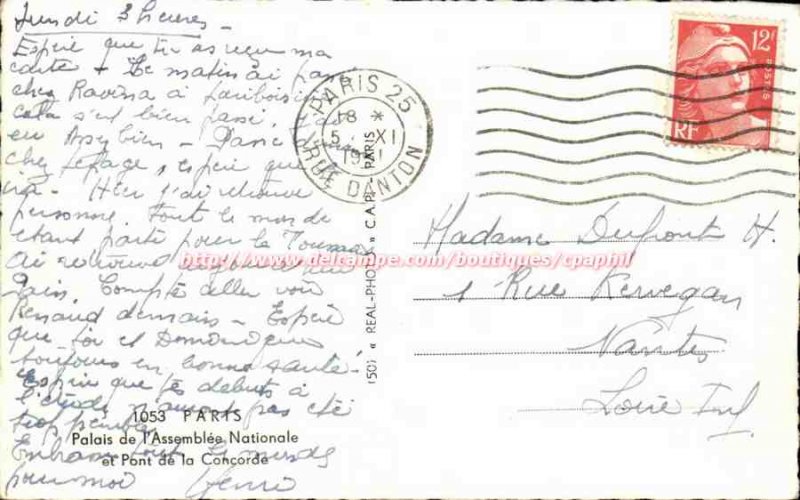 Lundi 3 heures -
Espère que tu as reçu ma
carte + Ce matin ai passé
chez Ravina à Lariboisière
cela s'est bien passé.
en Assez bien - Passé
chez Lepage, espère que
ira - Hier j'ai retrouvé
personne. Tout le monde
étant parti pour la Toussaint
Ai retrouvé aujourd'hui
Compte aller voir
Renaud demain - Espère
que toi et Dominique
toujours en bonne santé.
Espère que tes débuts à
l'école n'auront pas été
trop pénibles
Embrasse tout le monde
pour moi Henri
1053 PARIS
Palais de l'Assemblée Nationale
et Pont de la Concorde
PARIS 25
18 *
5 XI
RUE DANTON
« REAL-PHOTO » C.A.P. PARIS
12F
POSTES
RF
Madame Dufront H.
1 Rue Kervegan
Nantes
Loire Inf
http://www.delcampe.com/boutiques/cpaphil